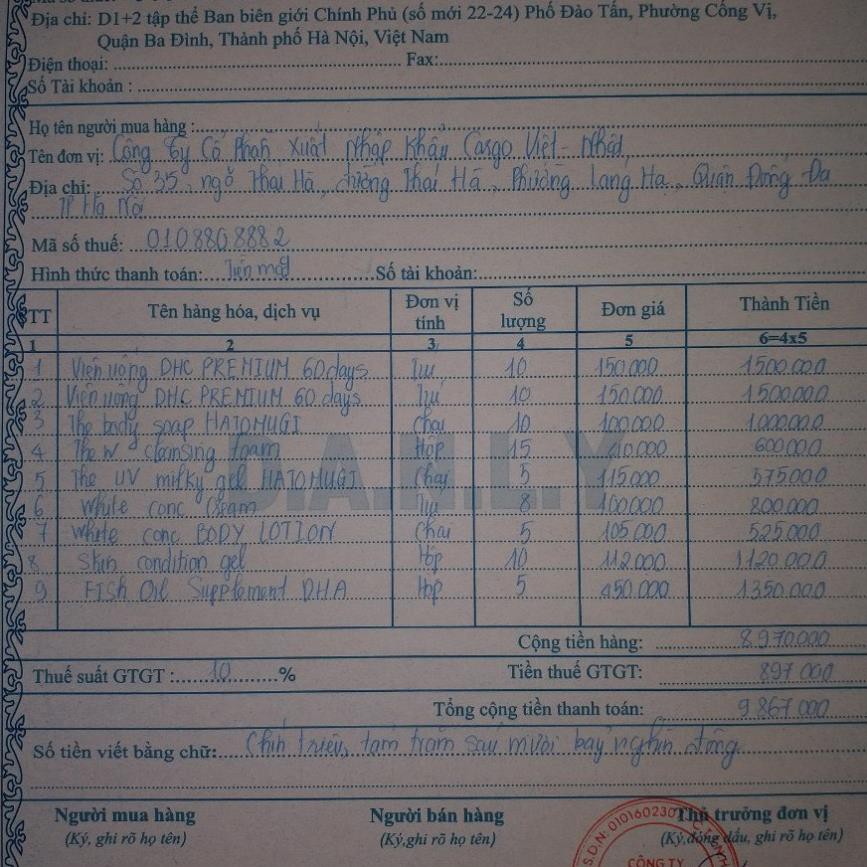 Địa chỉ: D1+2 tập thể Ban biên giới Chính Phủ (số mới 22-24) Phố Đào Tấn, Phường Cống Vị,
Quận Ba Đình, Thành phố Hà Nội, Việt Nam
Điện thoại: Fax:
Số Tài khoản :
Họ tên người mua hàng :
Tên đơn vị: Công ty Cổ Phần Xuất Nhập Khẩu Cargo Việt - Nhật
Địa chỉ: Số 35, ngõ Thái Hà, đường Thái Hà, Phường Láng Hạ, Quận Đống Đa
TP Hà Nội
Mã số thuế: 0108808882
Hình thức thanh toán: Tiền mặt Số tài khoản:
TT Tên hàng hóa, dịch vụ Đơn vị tính Số lượng Đơn giá Thành Tiền
1 2 3 4 5 6=4x5
1 Viên uống DHC PREMIUM 60 days Túi 10 150.000 1.500.000
2 Viên uống DHC PREMIUM 60 days Túi 10 150.000 1.500.000
3 The body soap HATOMUGI Chai 10 100.000 1.000.000
4 The w cleansing foam Hộp 15 40.000 600.000
5 The UV milky gel HATOMUGI Chai 5 115.000 575.000
6 White conc Cream Túi 8 100.000 800.000
7 White conc BODY LOTION Chai 5 105.000 525.000
8 Skin condition gel Hộp 10 112.000 1.120.000
9 Fish Oil Supplement DHA Hộp 5 450.000 1.350.000
D.A.N.L.Y
Cộng tiền hàng: 8.970.000
Thuế suất GTGT : 10 % Tiền thuế GTGT: 897.000
Tổng cộng tiền thanh toán: 9.867.000
Số tiền viết bằng chữ: Chín triệu, tám trăm sáu mươi bảy nghìn đồng
Người mua hàng Người bán hàng Thủ trưởng đơn vị
(Ký, ghi rõ họ tên) (Ký,ghi rõ họ tên) (Ký,đóng dấu, ghi rõ họ tên)
S.D.N: 010160230
CÔNG TY